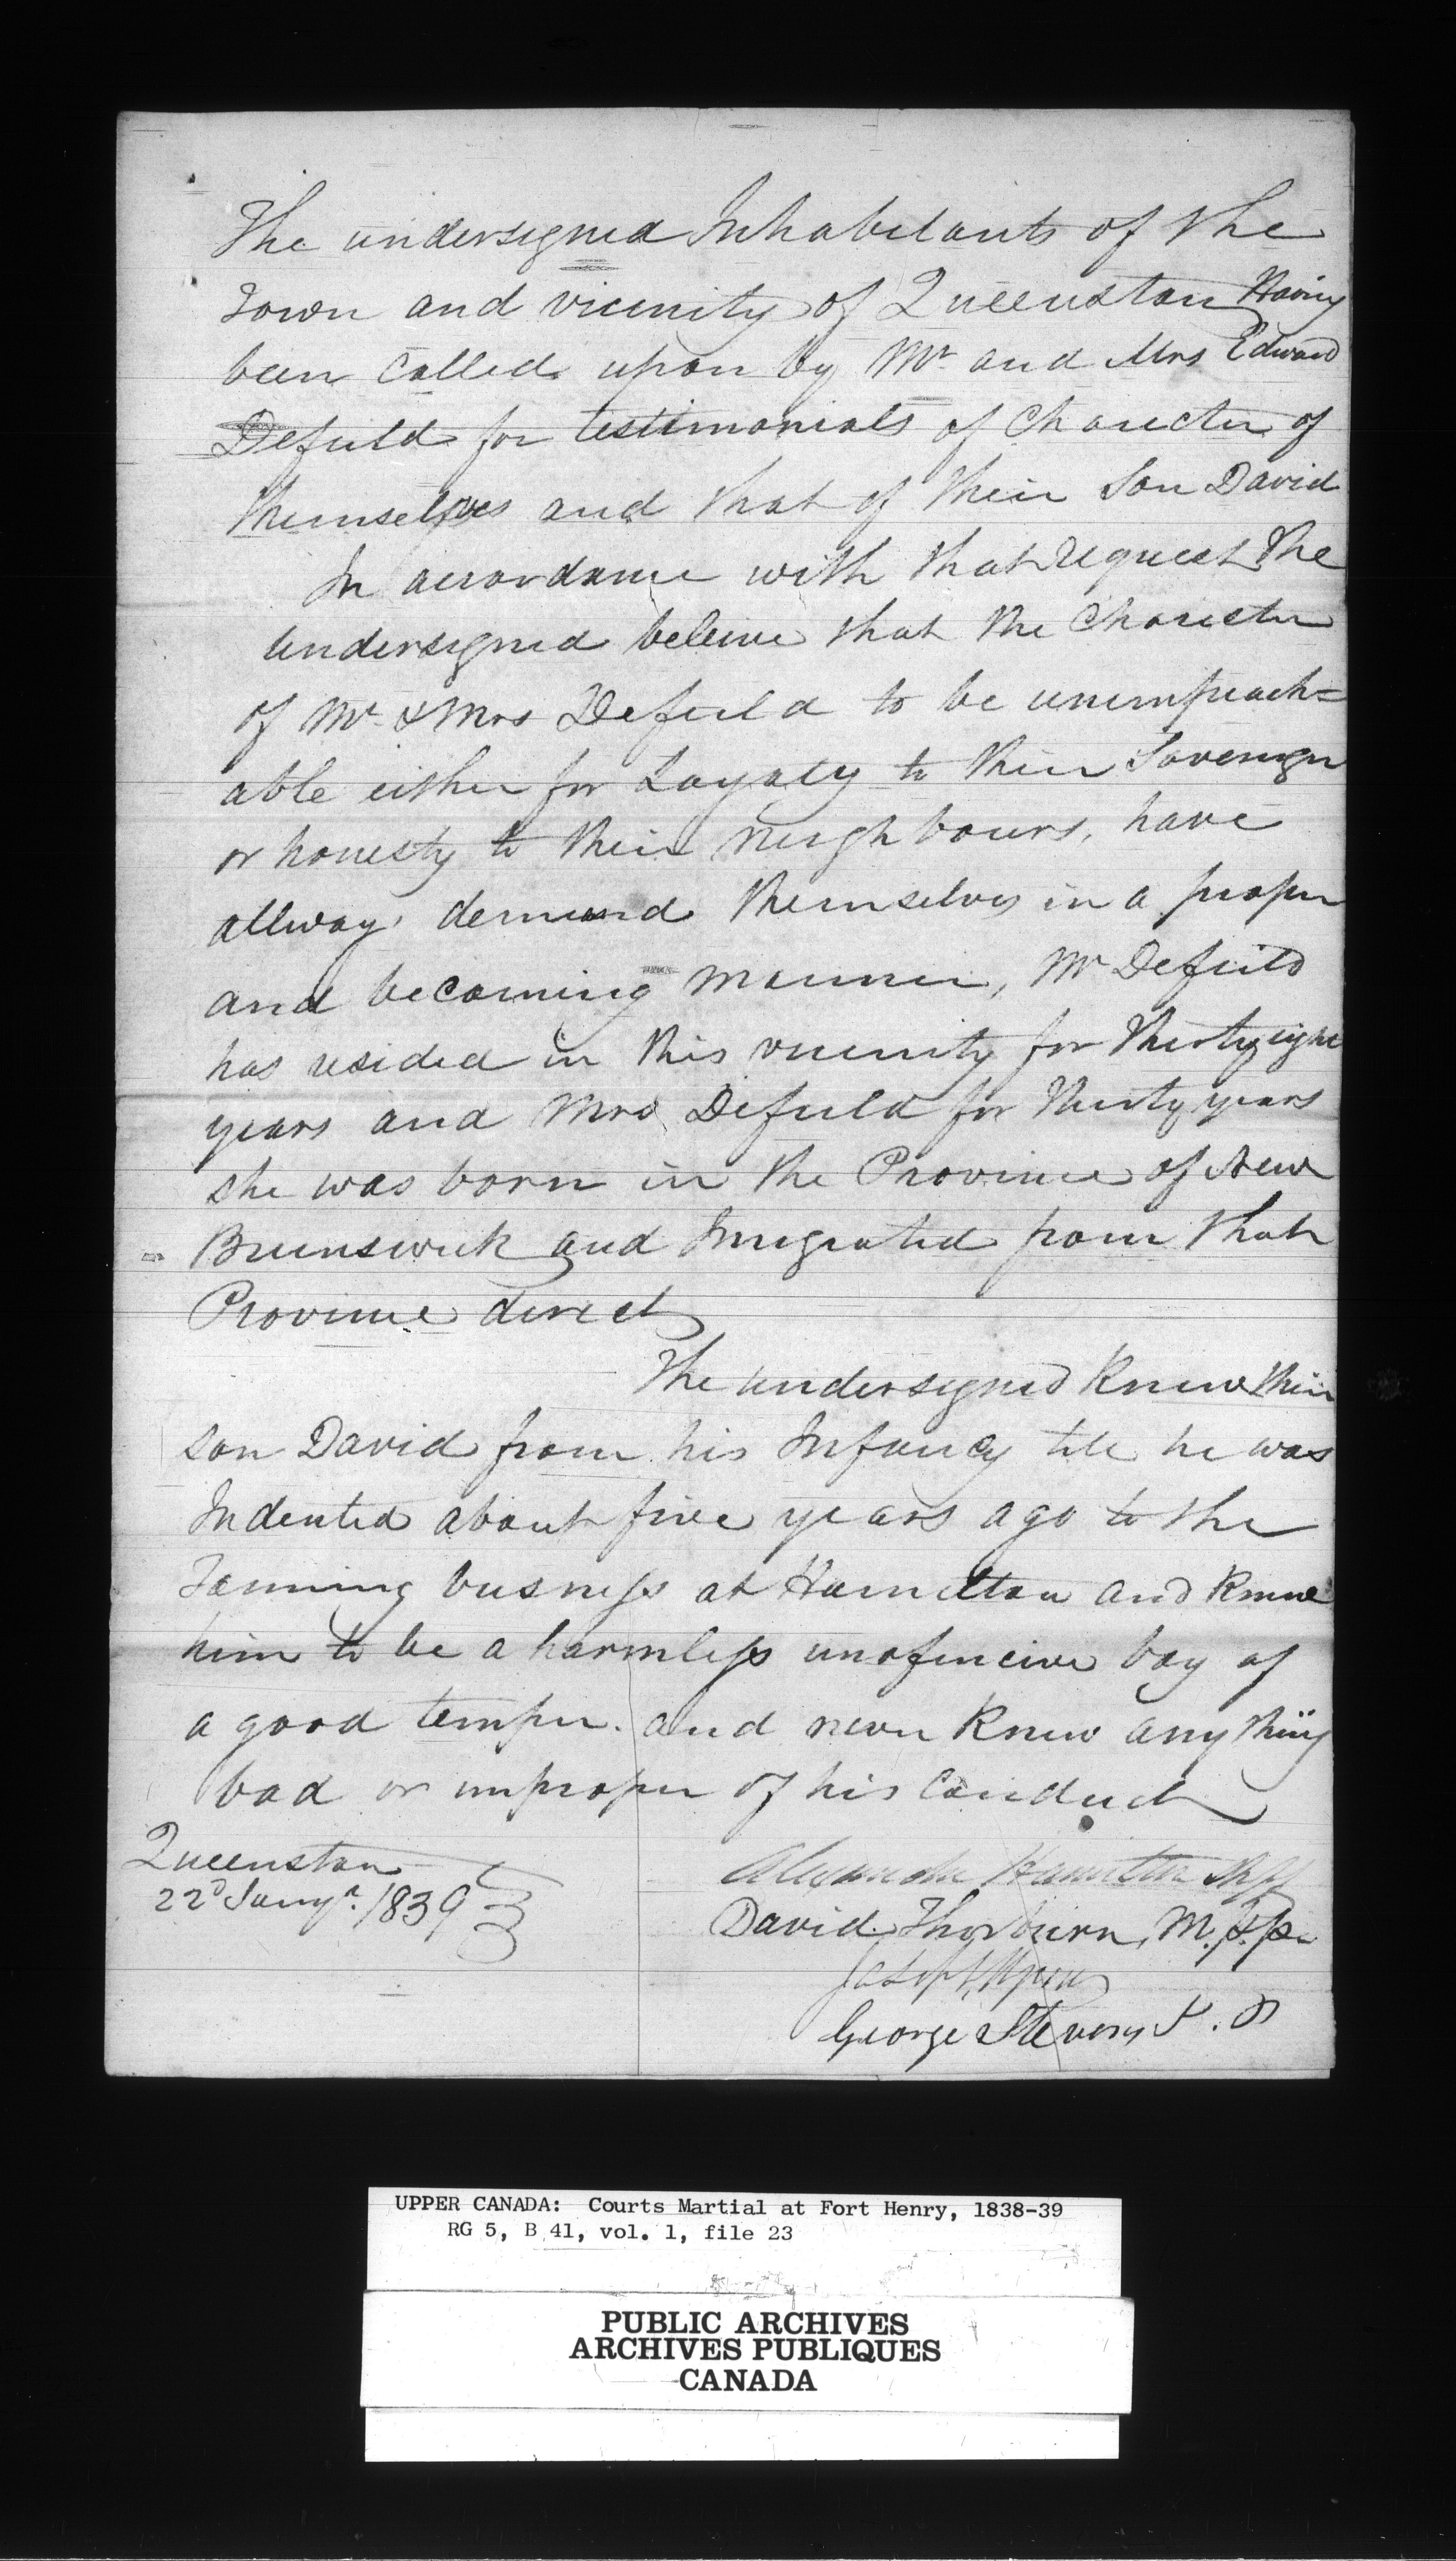 The undersigned Inhabitants of the
Town and vicinity of Queenston Having
been called upon by Mr and Mrs Edward
Defield for testimonials of Charecter of
themselves and that of their Son David
In accordance with that request the
undersigned beleive that the Charecter
of Mr & Mrs Defield to be unimpeach=
able either for Loyalty to their Sovereign
or honesty to their neighbours, have
allways demeand themselves in a proper
and becoming manner, Mr Defield
has resided in this vicinity for thirty eight
years and Mrs Defield for thirty years
she was born in the Province of New
Brunswick and Imigrated from that
Province direct
The undersigned Knew their
son David from his Infancy till he was
Indented about five years ago to the
Tanning business at Hamilton and Knew
him to be a harmless unofencive boy of
a good temper. and never Knew any thing
bad or improper of his Conduct
Queenston
22d Jany. 1839
Alexander Hamilton Shff
David Thorburn, M.P.P.
Joseph
George Stevens J.P
UPPER CANADA: Courts Martial at Fort Henry, 1838-39
RG 5, B 41, vol. 1, file 23
PUBLIC ARCHIVES
ARCHIVES PUBLIQUES
CANADA